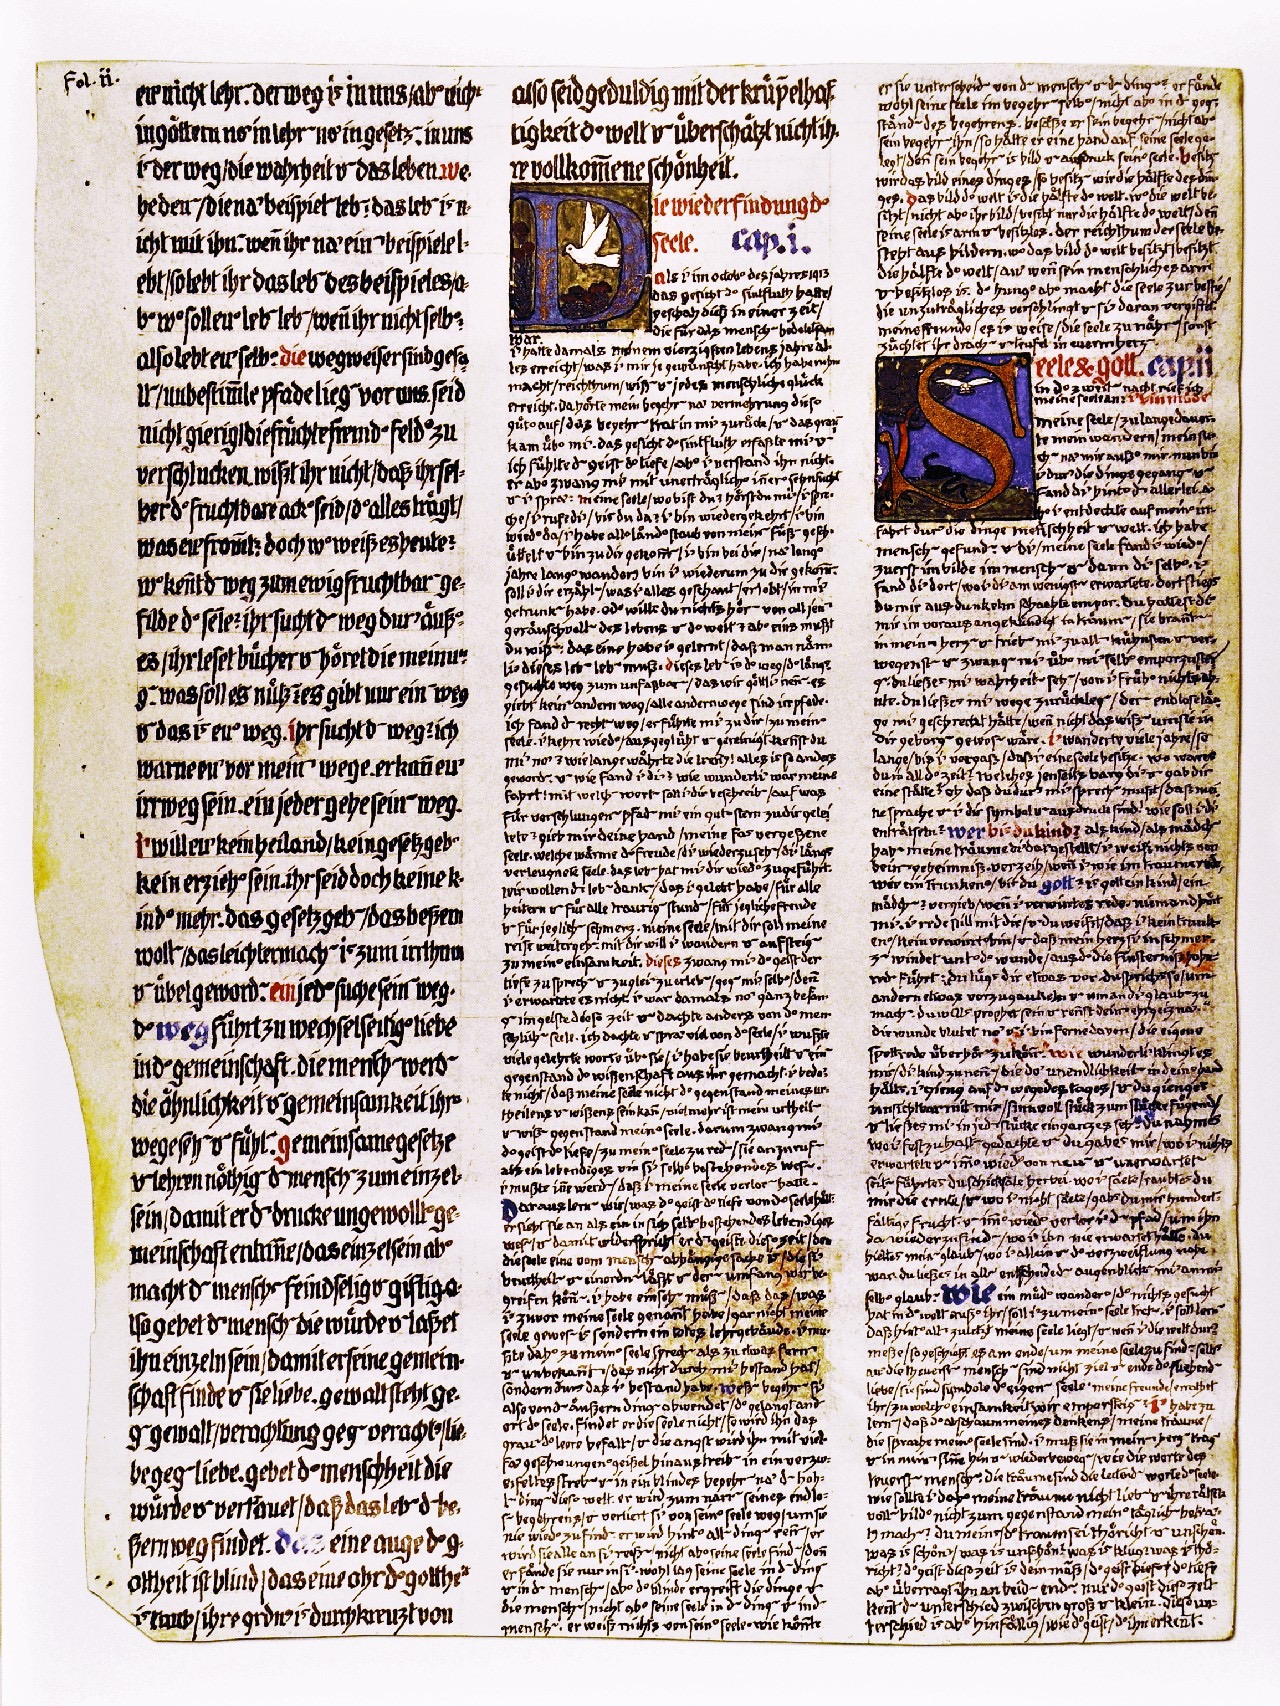 Fol. ii.
eure nicht lehr. der weg i' in uns/ab° nich'
in göttern no' in lehr' no' in gesetz'. in uns
i' der weg/die wahrheit v das leben. we-
he den'/die na' beispiel' leb': das leb' i' n-
icht mit ihn'. weñ ihr na' ein' beispiele l-
ebt/so lebt ihr das leb' des beispieles/a-
b° w° soll eur leb' leb'/weñ ihr nicht selb':
also lebt eur selb'. die wegweiser sind gefa-
ll'/unbestim̄te pfade lieg' vor uns. seid
nicht gierig/die früchte fremd° feld° zu
verschlucken. wißt ihr nicht/daß ihr sel-
ber d° fruchtbare ack° seid/d° alles trägt/
was eur from̄t: doch w° weiß es heute:
w° keñt d' weg zum ewig fruchtbar' ge-
filde d° seele: ihr sucht d' weg dur' äuß'-
es/ihr leset bücher v höret die meinu-
g'. was soll es nütz': es gibt nur ein' weg
v das i' eur weg. ihr sucht d' weg: ich
warne eu' vor mein' wege. er kañ eu'
irrweg sein. ein jeder gehe sein' weg.
i' will eu' kein heiland/kein gesetzgeb°
kein erzieh° sein. ihr seid doch keine k-
ind° mehr. das gesetzgeb'/das beßern
woll'/das leichtermach' i' zum irrthum
v übel geword'. ein jed° suche sein' weg.
d° weg führt zu wechselseitig° liebe
in d° gemeinschaft. die mensch' werd'
die ähnlichkeit v gemeinsamkeit ihr°
wege seh' v fühl'. gemeinsame gesetze
v lehren nöthig' d' mensch' zum einzel-
sein/damit er d' drucke ungewollt° ge-
meinschaft entriñe/das einzelsein ab°
macht d' mensch' feindselig v giftig. a-
lso gebet d' mensch' die würde v laßet
ihn einzeln sein/damit er seine gemein-
schaft finde v sie liebe. gewalt steht ge-
g' gewalt/verachtung geg' veracht'/lie-
be geg' liebe. gebet d° menschheit die
würde v vertrauet/daß das leb' d' be-
ßern weg findet. das eine auge d° g-
ottheit ist blind/das eine ohr d° gotthe'
i' taub/ihre ordn' i' durchkreuzt von
also seid geduldig mit der krüp̄elhaf-
tigkeit d° welt v überschätzt nicht ih-
re vollkom̄ene schönheit.
Die wiederfindung d°
seele. cap. i.
als i' im octob° des jahres 1913
das gesicht d° sintfluth hatte/
geschah dieß in einer zeit/
die für als mensch bedeutsam
war.
i' hatte damals meinem vierzigsten lebensjahre al-
les erreicht/was i' mir je gewünscht habe. ich habe ruhm
macht/reichthum/wiß' v jedes menschliche glück
erreicht. da hörte mein begehr' na' vermehrung dies°
güter auf/das begehr' trat in mir zurück/v das grau'
kam üb° mi'. das gesicht d° sintfluth erfaßte mi' v
ich fühlte d' geist d° tiefe/ab° i' verstand ihn nicht.
er ab° zwang mi' mit unerträglich° iñer° sehnsucht
v i' spra': meine seele/wo bist du: hörst du mi': i' spre-
che/i' rufe di'/bist du da: i' bin wiedergekehrt/i' bin
wied° da/i' habe all° länd° staub von mein' füß' gesch-
üttelt v bin zu dir gekom̄'/i' bin bei dir/na' lang°
jahre lang° wandern bin i' wiederum zu dir gekom̄'.
soll i' dir erzähl'/was i' alles geschaut/erlebt/in mi'
getrunk' habe. od° willst du nichts hör' von all jen'
geräuschvoll' des lebens v d° welt: ab° eins mußt
du wiß': das eine habe i' gelernt/daß man näm-
lich dieses leb' leb' muß. dieses leb' i' d° weg/d° längst
gesuchte weg zum unfaßbar'/das wir göttli' neñ'. es
giebt kein' andern weg/alle andern wege sind irrpfade.
ich fand d' recht' weg/er führte mi' zu dir/zu mein°
seele. i' kehre wied°/ausgeglüht v gereinigt. keñst du
mi' no': wie lange währte die treñ'g! alles is so anders
geword'. v wie fand i' di': wie wunderli' war meine
fahrt! mit welch' wort' soll i' dir beschreib'/auf was
für verschlungen' pfad' mi' ein gut° stern zu dir gelei-
tete: gieb mir deine hand/meine fast vergeßene
seele. welche wärme d° freude/di' wiederzuseh'/di' längst
verleugnete seele. das leb' hat mi' dir wied° zugeführt.
wir wollen d' leb' dank'/das i' gelebt habe/für alle
heitern v für alle traurig' stund'/für jegliche freude
v für jeglich' schmerz. meine seele/mit dir soll meine
reise weitergeh'. mit dir will i' wandern v aufsteig'
zu mein° einsamkeit. dieses zwang mi' d° geist der
tiefe zu sprech' v zuglei' zu erleb'/geg' mi' selbst/deñ
i' erwartete es nicht. i' war damals no' ganz befan-
g' im geiste dies° zeit v dachte anders von d° men-
schlich' seele. ich dachte v spra' viel von d° seele/i' wußte
viele gelehrte worte üb° sie/i' habe sie beurtheilt v ein'
gegenstand d° wissenschaft aus ihr gemacht. i' beda-
te nicht/daß meine seele nicht d° gegenstand meines ur-
theilens v wißens sein kañ/viel mehr ist mein urtheil'
v wiß' gegenstand mein° seele. darum zwang mi'
d° geist d° tiefe/zu mein° seele zu red'/sie anzuruf'
als ein lebendiges v in si' selbst bestehendes wes'.
i' mußte iñe werd'/daß i' meine seele verlor' hatte.
Daraus lern' wir/was d° geist d° tiefe von d° seele hält:
er sieht sie an als ein in sich selbst bestehendes lebendiges
wes'/v damit widerspricht er d' geiste dies° zeit/dem
die seele eine vom mensch' abhängige sache i'/die si'
beurtheil' v einordn' läßt v der' umfang wir be-
greifen köñ'. i' habe einseh' müß'/daß das/was
i' zuvor meine seele genañt habe/gar nicht meine
seele gewes' is/sondern ein totes lehrgebäude. i' mu-
ßte dah° zu mein° seele sprech' als zu etwas fern'
v unbekañt'/das nicht durch mi' bestand hat/
sondern durch das i' bestand habe. weß' begehr' si'
also von d' äußern ding' abwendet/d° gelangt an d'
ort d° seele. findet er die seele nicht/so wird ihn das
grau' d° leere befall'/v die angst wird ihn mit viel-
fa' geschwungen° geißel hinaustreib' in ein verzw-
eifeltes streb' v in ein blindes begehr' na' d' hoh-
l' ding' dies° welt. er wird zum narr' seines endlo-
s' begehrens/v verliert si' von sein° seele weg/um sie
nie wied° zu find'. er wird hint° all' ding' reñ'/er
wird sie alle an si' reiß'/nicht ab° seine seele find'/deñ
er fände sie nur in si'. wohl lag seine seele in d' ding'
v in d' mensch'/ab° d° blinde ergreift die dinge v
die mensch'/nicht ab° seine seele in d' ding' v in d'
mensch'. er weiß nichts von sein° seele. wie könnte
er sie unterscheid' von d' mensch' v d' ding': er fände
wohl seine seele im begehr' selb°/nicht ab° in d' geg'-
ständ' des begehrens. besäße er sein begehr'/nicht ab°
sein begehr' ihn/so hätte er eine hand auf seine seele ge-
legt/deñ sein begehr' is bild v ausdruck sein° seele. besitz'
wir das bild eines dinges/so besitz' wir die hälfte des din-
ges. das bild d° welt is die hälfte d° welt. w° die welt be-
sitzt/nicht ab° ihr bild/besitzt nur die hälfte d° welt/deñ
seine seele is arm v besitzlos. der reichthum der seele be-
steht aus bildern. w° das bild d° welt besitzt/besitzt
die hälfte d° welt/au' weñ sein menschliches arm
v besitzlos is. d° hung° ab° macht die seele zur bestie/
die unzuträgliches verschlingt v si' daran vergiftet.
meine freunde/es i' weise/die seele zu nähr'/sonst
züchtet ihr drach' v teufel in euerm herz'.
Seele & gott. cap ii
in d° zweit' nacht rief ich
meine seele an: i' bin müde
meine seele/zu lange dauer-
te mein wandern/mein su-
ch' na' mir auß° mir. nun bin
i' dur' die dinge gegang' v
fand di' hint° d' allerlei. a-
b° i' entdeckte auf mein° irr-
fahrt dur' die dinge menschheit v welt. ich habe
mensch' gefund'. v di'/meine seele fand i' wied°/
zuerst im bilde im mensch' v dann di' selbst. i'
fand di' dort/wo i' di' am wenigst' erwartete. dort stiegst
du mir aus dunkelm schachte empor. du hattest di'
mir im voraus angekündigt in träum'/sie brañt'
in mein' herz' v trieb' mi' zu all' kühnsten v ver-
wegenst' v zwang' mi' üb° mi' selbst emporzusteig'
g'. du ließest mi' wahrheit' seh'/von i' früh° nichts ah-
nte. du ließest mi' wege zurückleg'/der' endlose län-
ge mi' geschreckt hätte/weñ nicht das wiß' um sie in
dir geborg' gewes' wäre. i' wanderte viele jahre/so
lange/bis i' vergaß/daß i' eine seele besitze. wo warst
du in all d° zeit: welches jenseits barg di' v gab dir
eine stätte: oh daß du dur' mi' sprech' mußt/daß mei-
ne sprache v i' dir symbol v ausdruck sind! wie soll i' di'
enträtseln: wer bist du kind: als kind/als mädch'
hab' meine träume di' dargestellt/i' weiß nichts von
dein' geheimniß. verzeih'/weñ i' wie im traume rede
wie ein trunken°/bist du gott: is gott ein kind/ein
mädch': vergieb/weñ i' verwirrtes rede. niemand hört
mi'. i' rede still mit dir/v du weißt/daß i' kein trunk-
en°/kein verwirrt° bin/v daß mein herz si' in schmerz'
windet um d° wunde/aus d° die finsterniß hohn-
red' führt: du lügst dir etwas vor. du sprichst so/um
andern etwas vorzugaukeln v um an di' glaub' zu
mach'. du willst prophet sein v reñst dein' ehrgeiz na'.
die wunde blutet no' v i' bin ferne davon/die eigene
spottrede überhör' zu köñ'. wie wunderli' klingt es
mir/di' kind zu neñ'/die do' unendlichkeit' in dein° hand
hältst. i' gieng auf d' wege des tages/v du giengst
unsichtbar mit mir/siñvoll stück zum stücke fügend/
v ließest mi' in jed' stücke ein ganzes seh'. du nahmst
wo i' festzuhalt' gedachte v du gabst mir/wo i' nichts
erwartete v im̄° wied° von neu' v unerwartet'
seit' führtest du schicksale herbei. wo i' säete/raubtest du
mir die ernte/v wo i' nicht säete/gabst du mir hundert-
fältige frucht. v im̄° wied° verlor i' d' pfad/um ihn
da wiederzufind'/wo i' ihn nie erwartet hätte. du
hieltest mein' glaub'/wo i' allein v d° verzweiflung nahe
war. du ließest in all' entscheidend' augenblick' mi' an mi'
selbst glaub'. wie ein müd° wander°/d° nichts gesucht
hat in d° welt auß° ihr/soll i' zu mein° seele tret'. i' soll lern'
daß hint° all' zuletzt meine seele liegt/v weñ i' die welt dur'
meße/so geschieht es am ende/um meine seele zu find'. selbst
au' die theuerst' mensch' sind nicht ziel v ende d° suchend'
liebe/sie sind symbole d° eigen' seele. meine freunde/erratet
ihr/zu welch° einsamkeit wir emporsteig': i' habe zu
lern'/daß d° abschaum meines denkens/meine träume/
die sprache mein° seele sind. i' muß sie in mein' herz' trag'
v in mein' siñe hin v wiederbeweg'/wie die worte des
teuerst' mensch'. die träume sind die leitend' worte d° seele.
wie sollte i' dah° meine träume nicht lieb' v ihre rätsel-
voll' bild° nicht zum gegenstand mein° täglich' betra'-
t'g mach': du meinst/d° traum sei thöricht v unschön.
was is schön: was is unschön: was is klug: was is thö-
richt: d° geist dies° zeit is dein maß/d° geist d° tiefe
ab° überragt ihn an beid' end'. nur d° geist dies° zeit
keñt d' unterschied zwischen groß v klein. dies° un-
terschied is ab° hinfällig/wie d° geist/d° ihn erkeñt.